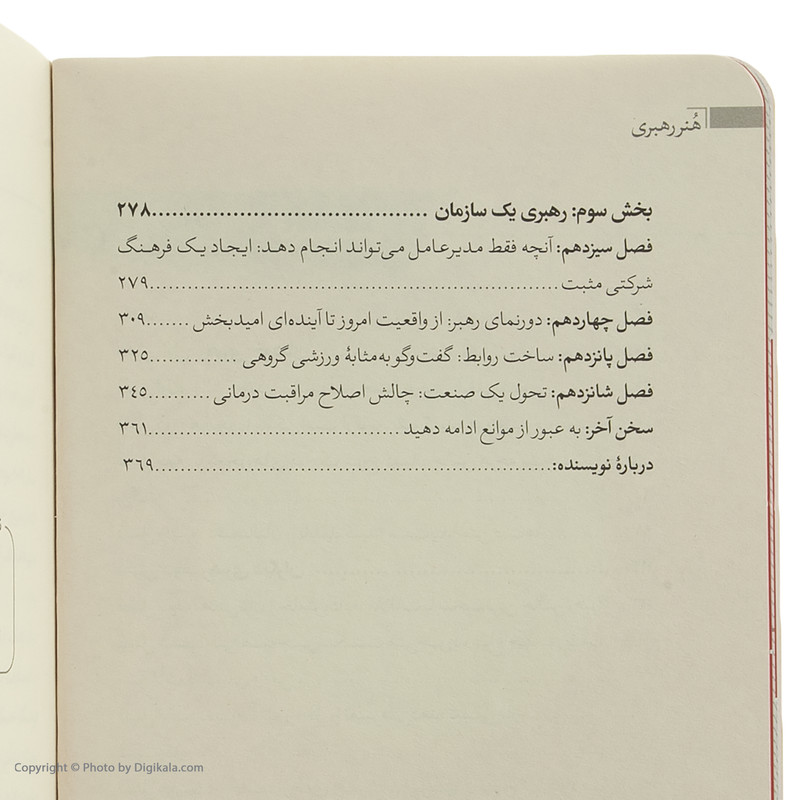 هُنر رهبری
بخش سوم: رهبری یک سازمان ........................................۲۷۸
فصل سیزدهم: آنچه فقط مدیرعامل می‌تواند انجام دهد: ایجاد یک فرهنگ
شرکتی مثبت ............................................................۲۷۹
فصل چهاردهم: دورنمای رهبر: از واقعیت امروز تا آینده‌ای امیدبخش .......۳۰۹
فصل پانزدهم: ساخت روابط: گفت‌وگو به‌مثابهٔ ورزشی گروهی ..............۳۲۵
فصل شانزدهم: تحول یک صنعت: چالش اصلاح مراقبت درمانی ..........۳۴۵
سخن آخر: به عبور از موانع ادامه دهید ......................................۳۶۱
دربارهٔ نویسنده:............................................................۳۶۹
Copyright © Photo by Digikala.com